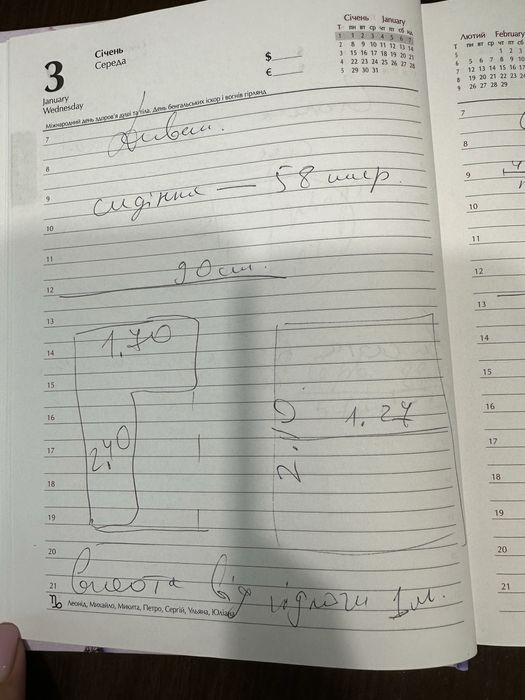 3
Січень
Середа
January
Wednesday
$
€
Січень January
Т пн вт ср чт пт сб нд
1 1 2 3 4 5 6 7
2 8 9 10 11 12 13 14
3 15 16 17 18 19 20 21
4 22 23 24 25 26 27 28
5 29 30 31
Міжнародний день здоров'я душі та тіла, День бенгальських іскор і вогнів гірлянд
7
Диван.
8
9
сидіння — 58 шир.
10
11
90 см.
12
13
14
1,70
15
16
1.27
2.10
17
2,40
18
19
20
21
Висота від підлоги 1 м.
Леонід, Михайло, Микита, Петро, Сергій, Уляна, Юліан
Лютий February
Т пн вт ср чт пт сб
5 1 2 3
6 5 6 7 8 9 10
7 12 13 14 15 16 17
8 19 20 21 22 23 24
9 26 27 28 29
7
8
9
10
11
12
13
14
15
16
17
18
19
20
21